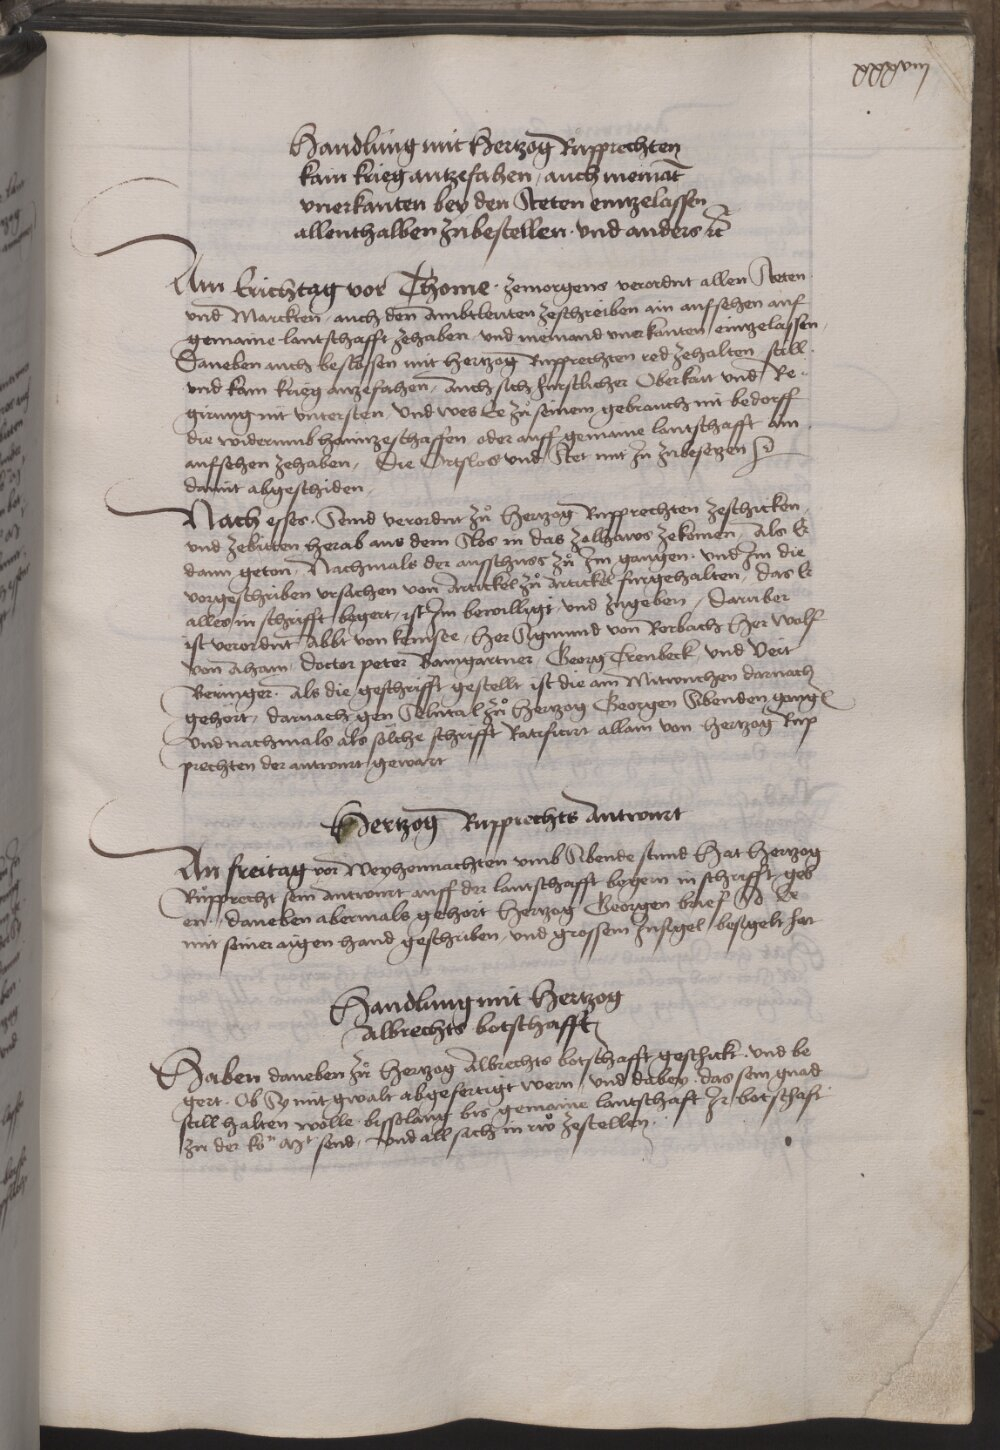 xxxviii
Handlung mit Hertzog Rupprechten
kain krieg antzefahen, auch niemāt
vnerkanten bey den Steten eintzelassen
allenthalben zubestellen. vnd anders ꝛc̃
Am Erichtag vor Thome. zemorgens verordnt allen Steten
vnd Marckten, auch den Ambtleuten zeschreiben ain aufsehen auf
gemaine lantschafft zehaben, vnd niemand vnerkanten eintzelassen,
Daneben auch beslossen mit hertzog Rupprechten red zehalten, still
vnd kain krieg anzefahen, Auch sich furstlicher Oberkait vnd Re-
girung nit vntersten, Vnd wes Er zu seinem gebrauch nit bedorff
die widerumb haimzeschaffen oder auff gemaine lantschafft ain
aufsehen zehaben, Die Ortslos vnd Stet mit In zubesetzen
damit abgeschiden,
Nach esses. Seind verordnt zů Hertzog Rupprechten zeschicken,
vnd zebitten herab aus dem Slos in das Zolhaws zekomen, Als Er
dann geton, Nachmals der ausschuss zů Im gangen. vnd Im die
vorgeschriben vrsachen von Artickel zů Artickel furgehalten, das Er
alles in schrifft begert, ist Im bewilligt, vnd zugeben, Daruber
ist verordnt Abbt von kemsee, Her Sigmund von Rorbach Her Wolf
von Aham, Doctor peter Bamgartner, Georg Trenbeck, vnd Veit
Beringer. Als die geschrifft gestellt ist die am Mitwuchen darnach
gehört, darnach gen Selntal zů Hertzog Georgen Sibenden gangen
vnd nachmals als sölche schrifft Ratificirt allain von Hertzog Rup
prechten der antwurt gewart
Hertzog Rupprechts Antwurt
An freitag vor Weyhennachten vmb Sibende stund Hat Hertzog
Rupprecht sein Antwurt auff der lantschafft begern in schrifft geb
en, daneben abermals gehört Hertzog Georgen brief So Er
mit seiner aigen hand geschriben, vnd grossem Insigel besigelt hat
Handlung mit Hertzog
Albrechts botschafft
Haben daneben zů Hertzog Albrechts botschafft geschickt. vnd be
gert. Ob Sy mit gwalt abgefertigt wern, vnd dabey. das sein gnad
still halten wölle bissolang bis gemaine lantschaft Ir botschaft
zu der ko͞n Mt send, vnd all sach in rŵ zestellen.